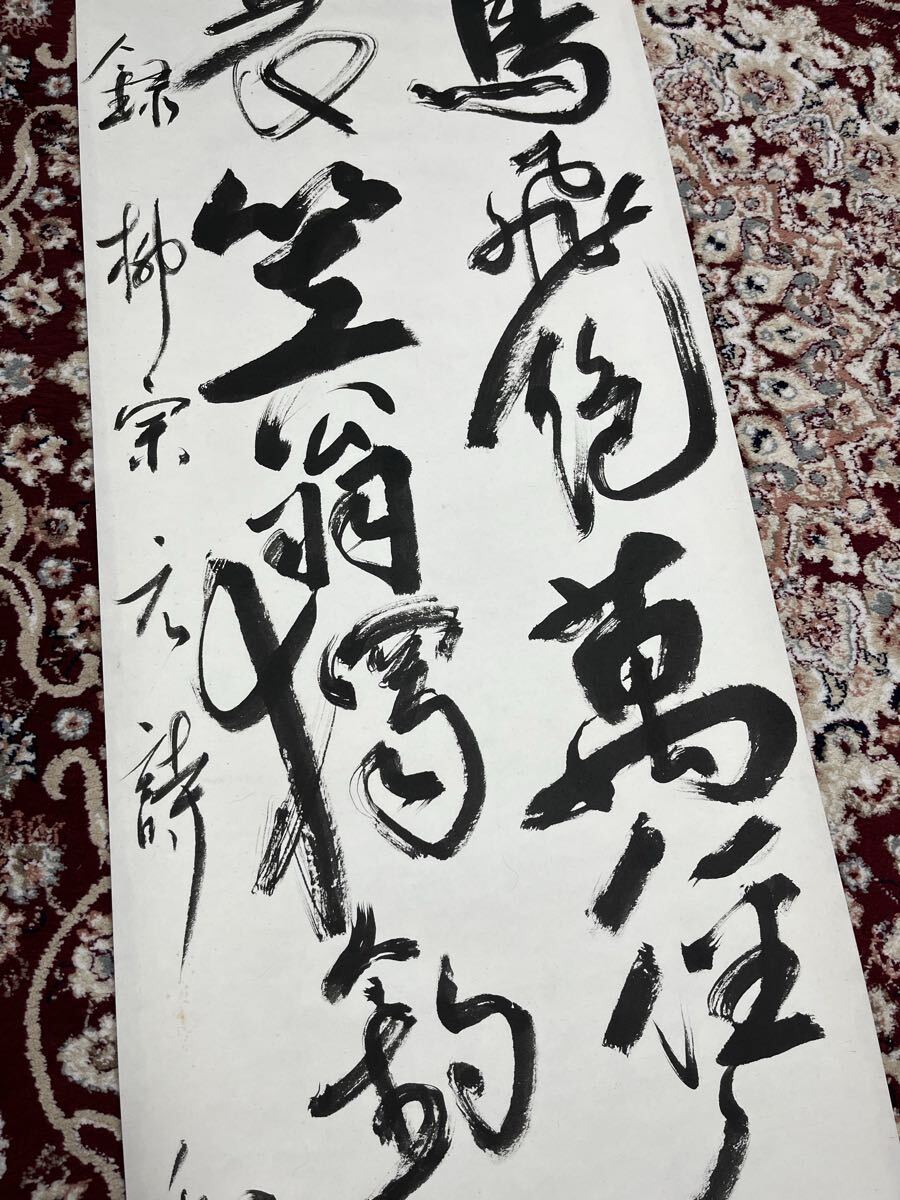 鳥飛絶萬徑
蓑笠翁獨釣
録柳宗元詩